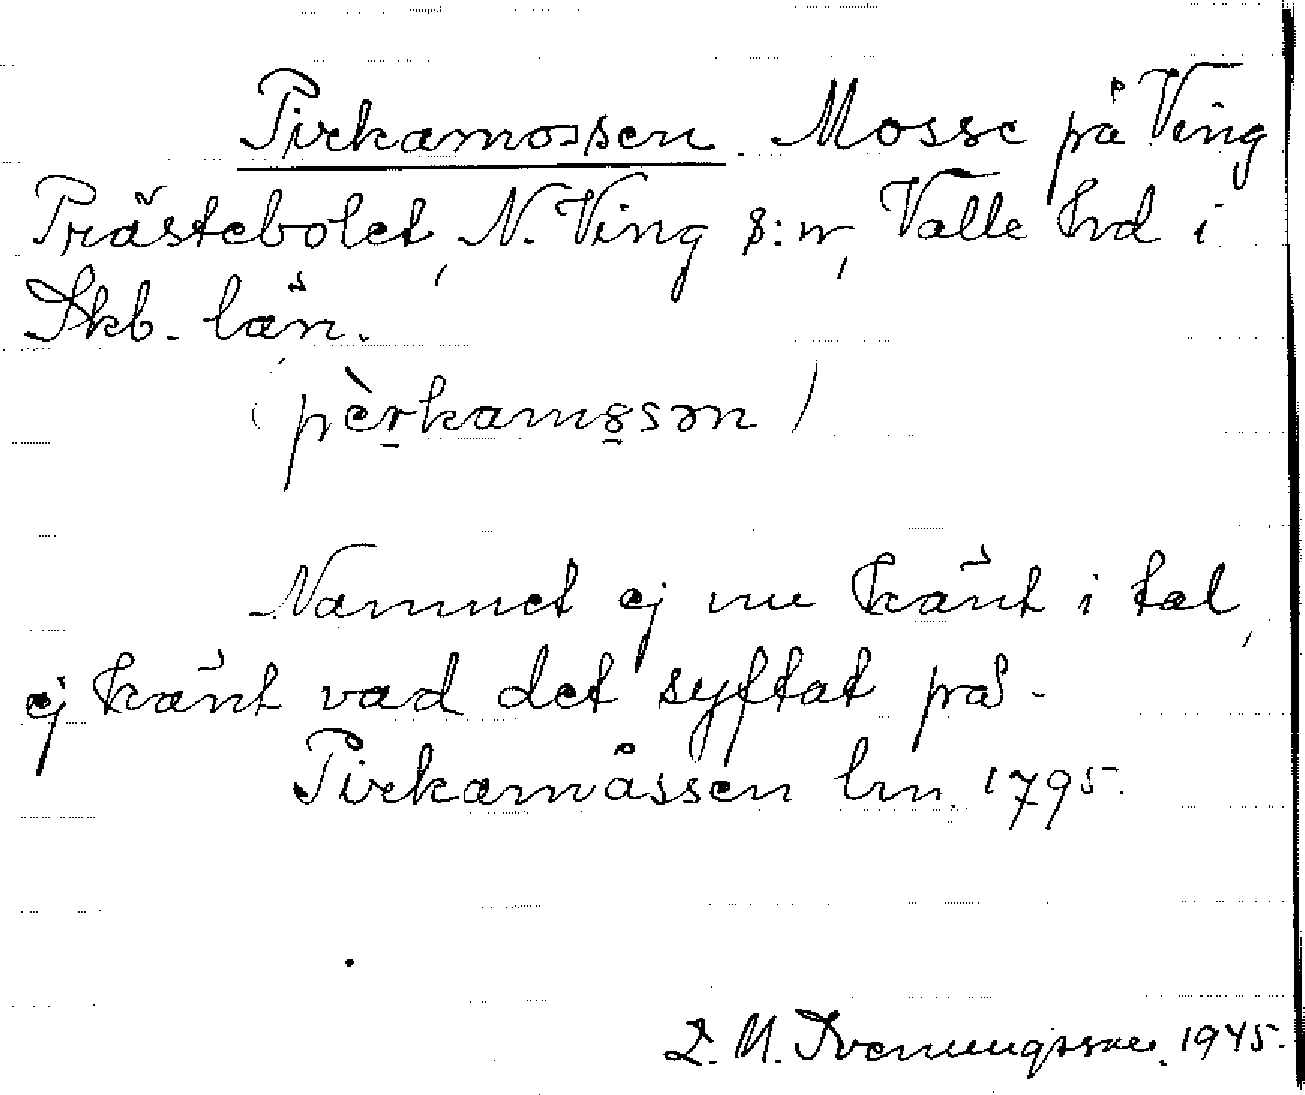 Pirkamossen. Mosse på Ving
Prästebolet, N. Ving s:n, Valle hd i
Skb. län.
(pèr̠kamo̠ssən)
Namnet ej nu känt i tal,
ej känt vad det syftat på.
Pirkamåssen lm. 1795.
L. M. Svenungsson. 1945.